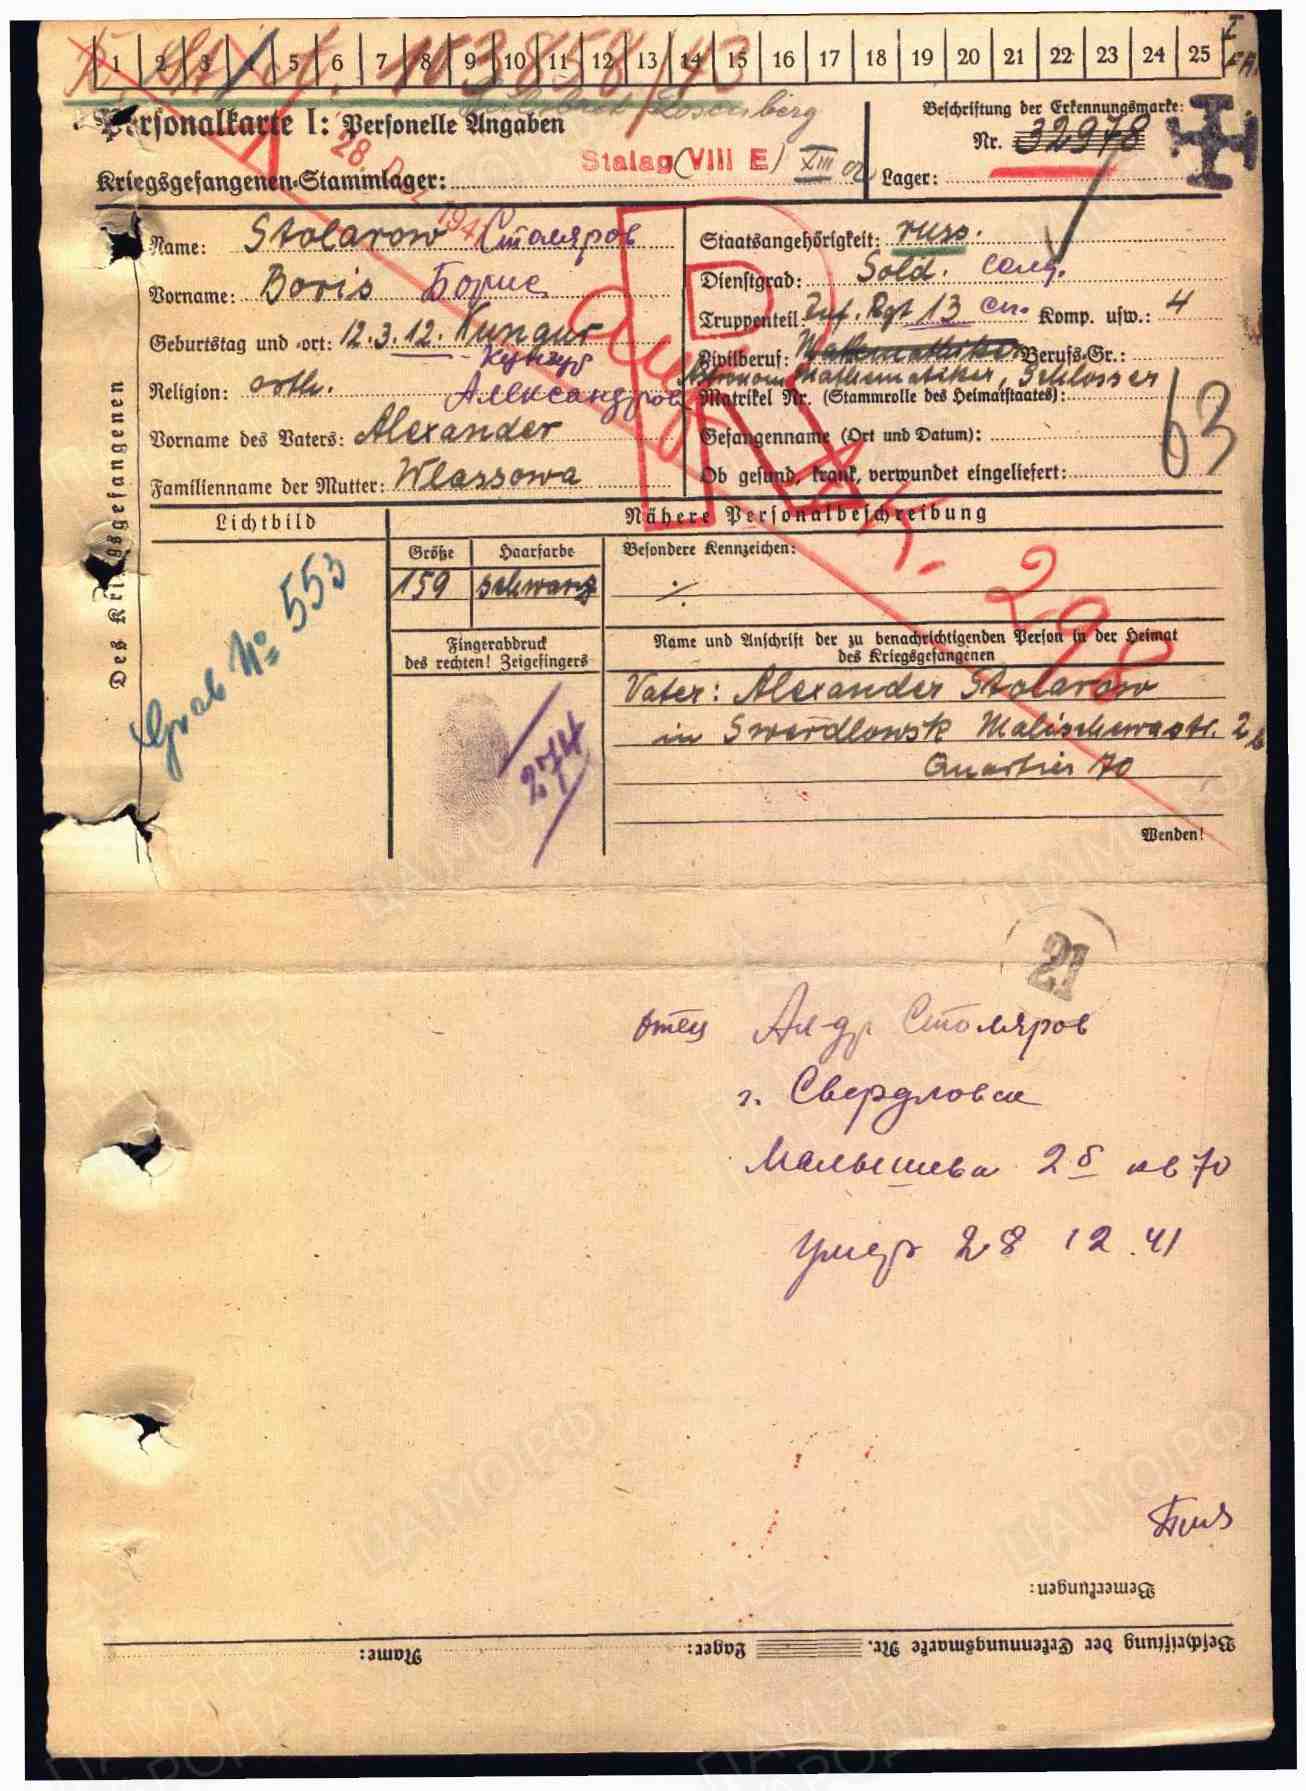 1 2 3 4 5 6 7 8 9 10 11 12 13 14 15 16 17 18 19 20 21 22 23 24 25
Personalkarte I: Personelle Angaben
Beschriftung der Erkennungsmarke:
Nr. 32978
Lager:
Kriegsgefangenen-Stammlager: Stalag (VIII E)
28. Dez. 1941
Des Kriegsgefangenen
Name: Stolarow Столяров
Vorname: Boris Борис
Geburtstag und -ort: 12.3.12. Kungur
Кунгур
Religion: orth.
Александров
Vorname des Vaters: Alexander
Familienname der Mutter: Wlassowa
Staatsangehörigkeit: russ.
Dienstgrad: Sold. солд.
Truppenteil: Inf. Rgt 13 сп. Komp. usw.: 4
Zivilberuf: Mathematiker Berufs-Gr.:
Astronom Mathematiker, Schlosser
Matrikel Nr. (Stammrolle des Heimatstaates):
Gefangenname (Ort und Datum):
Ob gesund, krank, verwundet eingeliefert:
63
R
298
Lichtbild
Grab No 553
Nähere Personalbeschreibung
Größe Haarfarbe
159 schwarz
Besondere Kennzeichen:
./.
Fingerabdruck
des rechten! Zeigefingers
Name und Anschrift der zu benachrichtigenden Person in der Heimat
des Kriegsgefangenen
Vater: Alexander Stolarow
in Swerdlowsk Malischewastr. 2b
Quartier 70
Wenden!
21
отец Ал-др Столяров
г. Свердловск
Малышева 2б кв 70
умер 28 12.41
Bemerkungen:
Beschriftung der Erkennungsmarke Nr. Lager: Name:
ЦАМО.РФ
ПАМЯТЬ НАРОДА